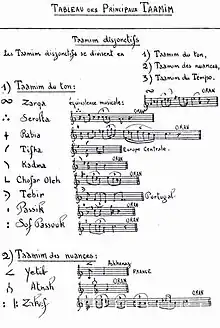 TABLEAU DES PRINCIPAUX TAAMIM
Taamim disjonctifs
Les Taamim disjonctifs se divisent en
1) Taamim du ton,
2) Taamim des nuances,
3) Taamim du Tempo.
1) Taamim du ton:
Zarqa équivalence musicales ORAN
Segolta ORAN
Rabia ORAN
Tifha Europe Centrale.
Kadma ORAN
Chofar Oleh ORAN
Tebir Portugal
Passik ORAN
Sof Passouk ORAN
2) Taamim des nuances:
Yetib Ashkenaz FRANCE
Atnah ORAN
Zakef ORAN